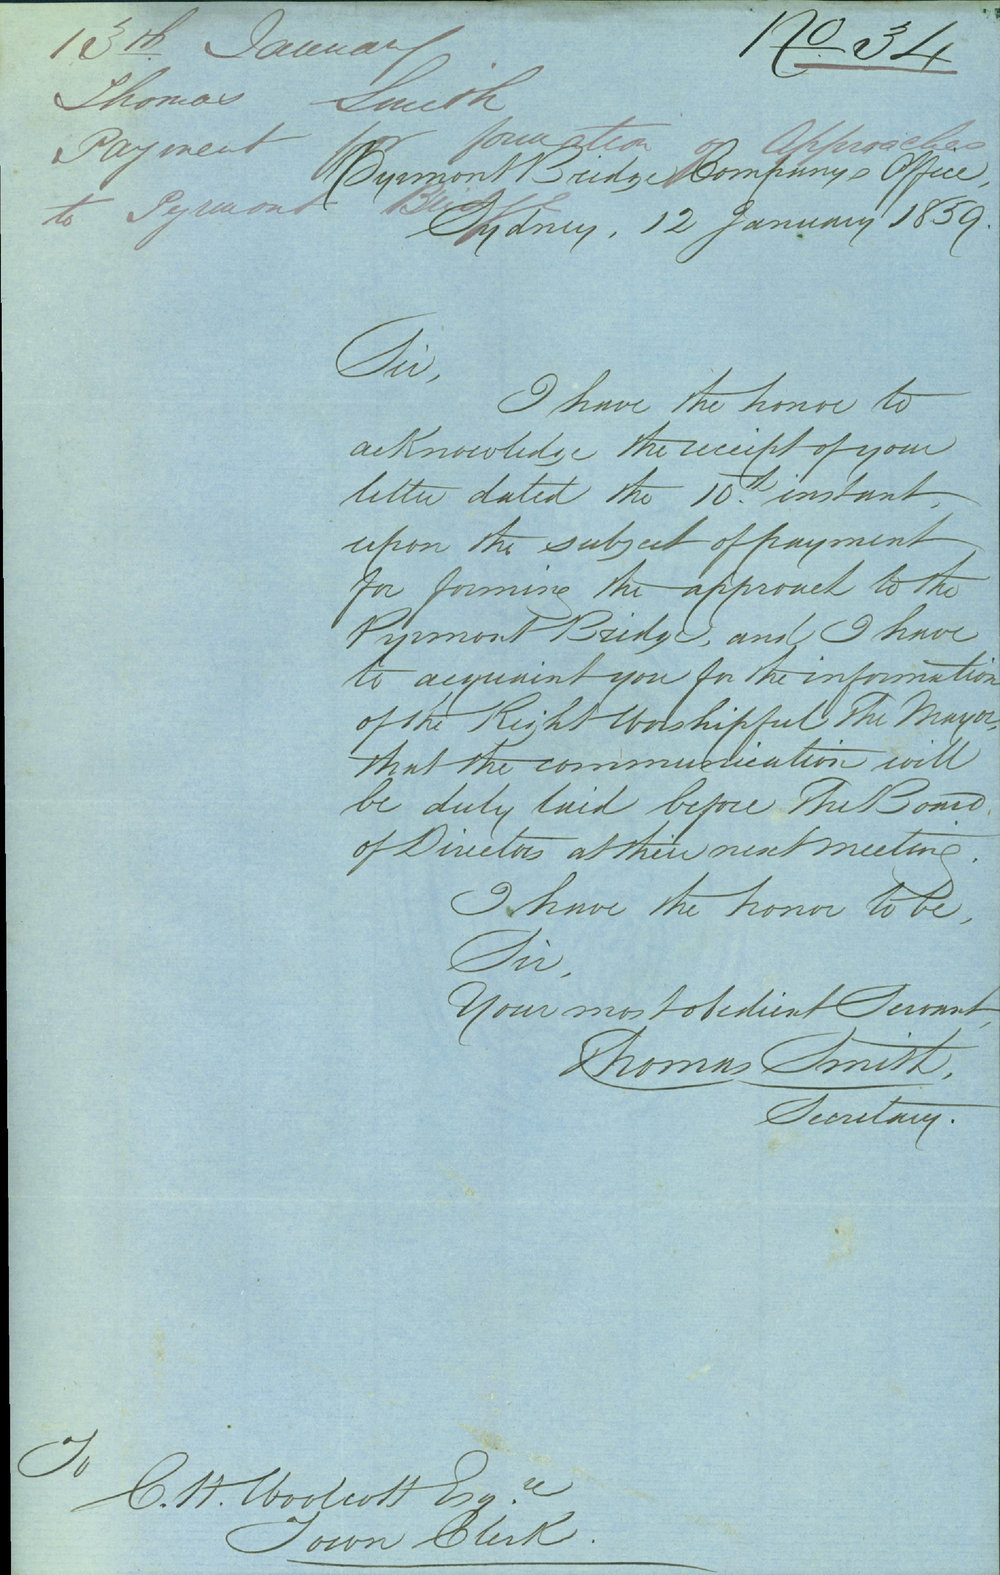 No 34
13th January
Thomas Smith
Payment for formation of Approaches
to Pyrmont Bridge
Pyrmont Bridge Company's Office,
Sydney, 12 January 1859.
Sir,
I have the honor to
acknowledge the receipt of your
letter dated the 10th instant,
upon the subject of payment
for forming the approach to the
Pyrmont Bridge, and I have
to acquaint you for the information
of the Right Worshipful The Mayor,
that the communication will
be duly laid before The Board
of Directors at their next meeting.
I have the honor to be,
Sir,
Your most obedient Servant,
Thomas Smith,
Secretary.
To
C. H. Woolcott Esqre
Town Clerk.